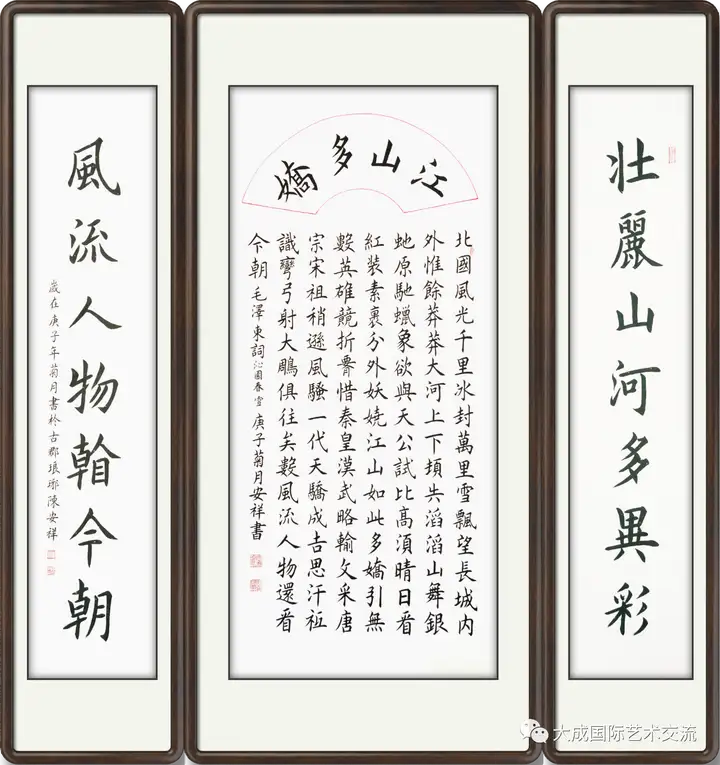 壮麗山河多異彩
江山多嬌
北國風光千里冰封萬里雪飄望長城内
外惟餘莽莽大河上下頓失滔滔山舞銀
虵原馳蠟象欲與天公試比高須晴日看
紅裝素裹分外妖嬈江山如此多嬌引無
數英雄競折腰惜秦皇漢武略輸文采唐
宗宋祖稍遜風騷一代天驕成吉思汗祗
識彎弓射大鵰俱往矣數風流人物還看
今朝毛澤東詞沁園春雪庚子菊月安祥書
風流人物看今朝
歲在庚子年菊月書於古郡琅琊陳安祥
大成国际艺术交流